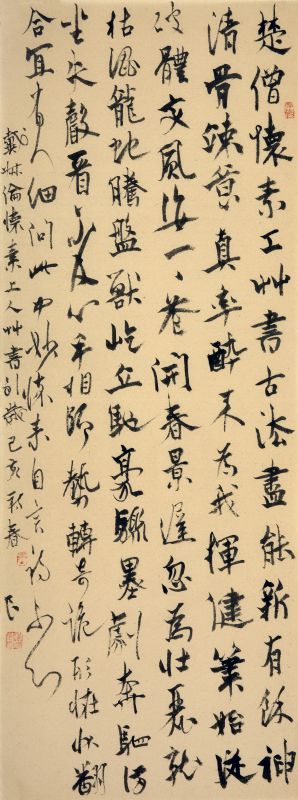 楚僧懷素工艸書古法盡能新有餘神
清骨竦意真率醉来為我揮健筆始從
破體變風姿一一花開春景遲忽為壯麗就
枯澀龍蛇騰盤獸屹立馳豪驟墨劇奔駟滿
坐失聲看不及心手相師勢轉奇詭形怪狀翻
合宜有人細問此中妙懷素自言初不知
戴叔倫懷素上人艸書歌己亥新春